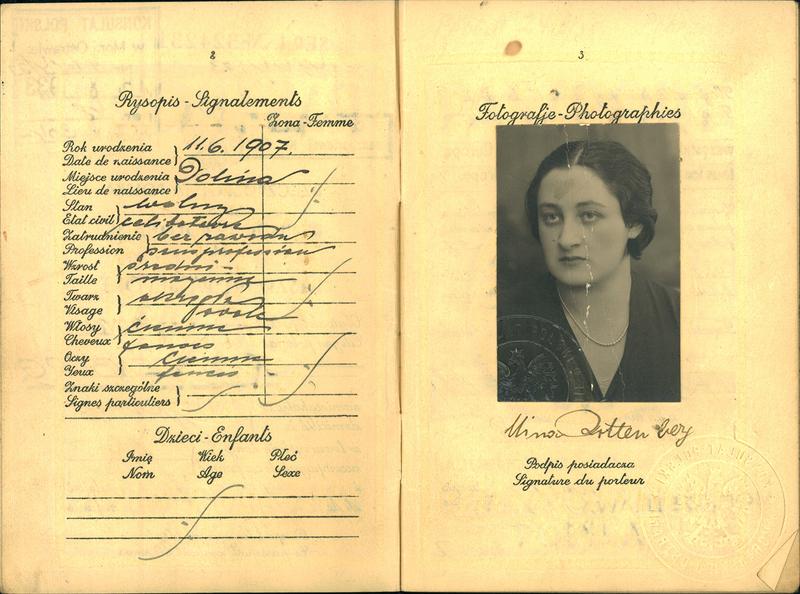 2
Rysopis - Signalements
Żona - Femme
Rok urodzenia
Date de naissance
11.6. 1907.
Miejsce urodzenia
Lieu de naissance
Dolina
Stan
wolny
Etat civil
celibataire
Zatrudnienie
bez zawodu
Profession
sans profession
Wzrost
średni
Taille
moyenne
Twarz
okrągła
Visage
ovale
Włosy
ciemne
Cheveux
foncés
Oczy
ciemne
Yeux
foncés
Znaki szczególne
Signes particuliers
Dzieci - Enfants
Imię Wiek Płeć
Nom Age Sexe
3
Fotografje - Photographies
Podpis posiadacza
Signature du porteur
KONSULAT POLSKI